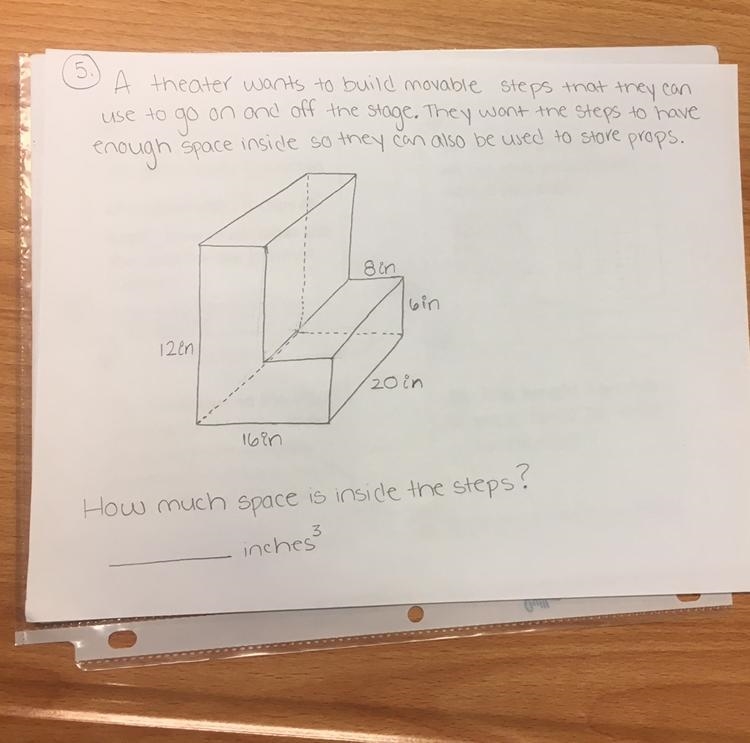 5. A theater wants to build movable steps that they can
use to go on and off the stage. They want the steps to have
enough space inside so they can also be used to store props.
8in
6in
12in
20in
16in
How much space is inside the steps?
______ inches³